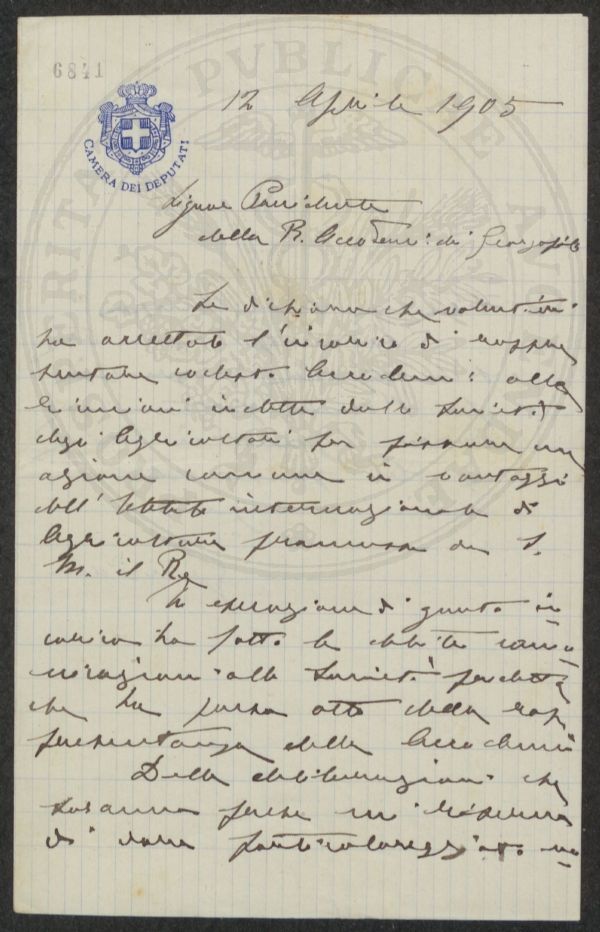 6841
CAMERA DEI DEPUTATI
12 Aprile 1905
Signor Presidente
della R. Accademia dei Georgofili
Le dichiaro che volentieri
ho accettato l'incarico di rappre
sentare codesta Accademia alla
riunioni indette dalla Società
degli Agricoltori per
azione comune a vantaggio
dell'Istituto internazionale di
Agricoltura promosso da S.
M. il Re
In esecuzione di questo in
carico ho fatto le debite comu
nicazioni alla Società predetta
che ha preso atto della rap
presentanza della Accademia
Delle deliberazioni che
saranno prese mi riservo
di dare particolareggiata no